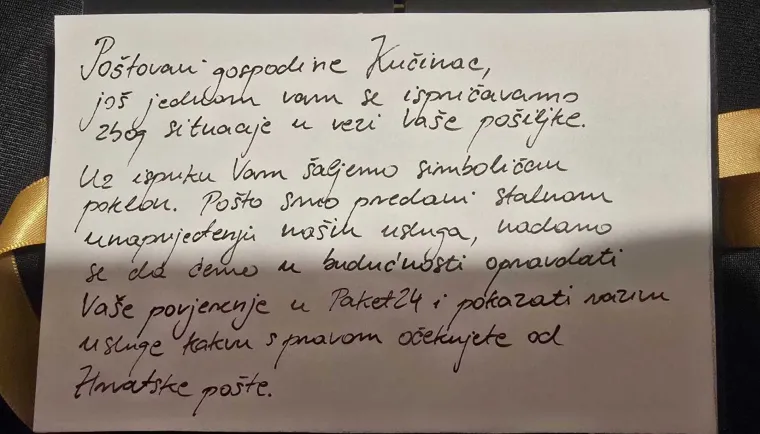 Poštovani gospodine Kučinac,
još jednom vam se ispričavamo
zbog situacije u vezi Vaše pošiljke.
Uz ispriku Vam šaljemo simboličan
poklon. Pošto smo predani stalnom
unaprjeđenju naših usluga, nadamo
se da ćemo u budućnosti opravdati
Vaše povjerenje u Paket24 i pokazati razinu
usluge kakvu s pravom očekujete od
Hrvatske pošte.